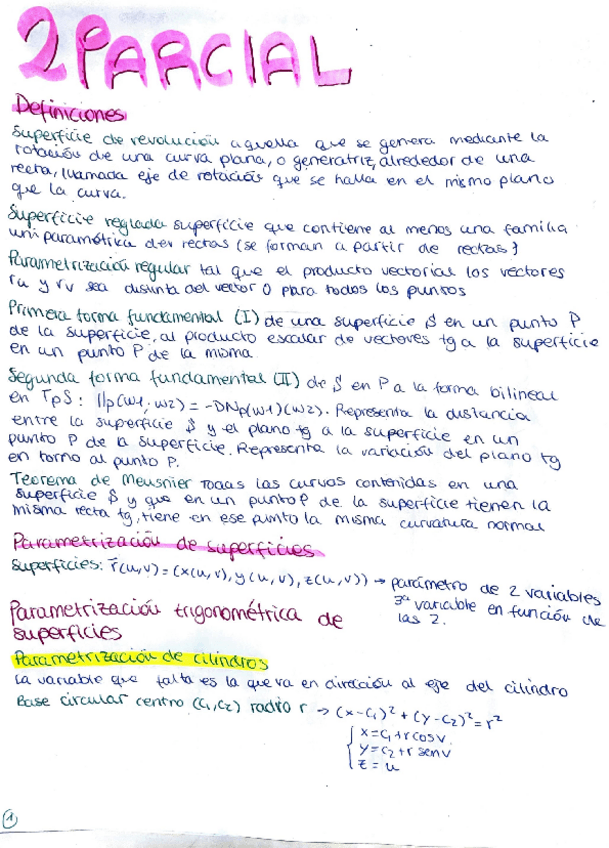 2 PARCIAL
Definiciones
Superficie de revolución aquella que se genera mediante la
rotación de una curva plana, o generatriz, alrededor de una
recta, llamada eje de rotación que se halla en el mismo plano
que la curva.
Superficie reglada superficie que contiene al menos una familia
uniparamétrica de rectas (se forman a partir de rectas)
Parametrización regular tal que el producto vectorial los vectores
ru y rv sea distinta del vector 0 para todos los puntos
Primera forma fundamental (I) de una superficie S en un punto P
de la superficie, al producto escalar de vectores tg a la superficie
en un punto P de la misma.
Segunda forma fundamental (II) de S en P a la forma bilineal
en TpS: IIp(w1, w2) = -DNp(w1)(w2). Representa la distancia
entre la superficie S y el plano tg a la superficie en un
punto P de la superficie. Representa la variación del plano tg
en torno al punto P.
Teorema de Meusnier Todas las curvas contenidas en una
superficie S y que en un punto P de la superficie tienen la
misma recta tg, tiene en ese punto la misma curvatura normal
Parametrización de superficies
Superficies: r̄(u,v) = (x(u,v), y(u,v), z(u,v)) → parámetro de 2 variables
3ª variable en función de
las 2.
Parametrización trigonométrica de
superficies
Parametrización de cilindros
La variable que falta es la que va en dirección al eje del cilindro
Base circular centro (c1,c2) radio r → (x-c1)² + (y-c2)² = r²
x = c1 + r cos v
y = c2 + r sen v
z = u
1